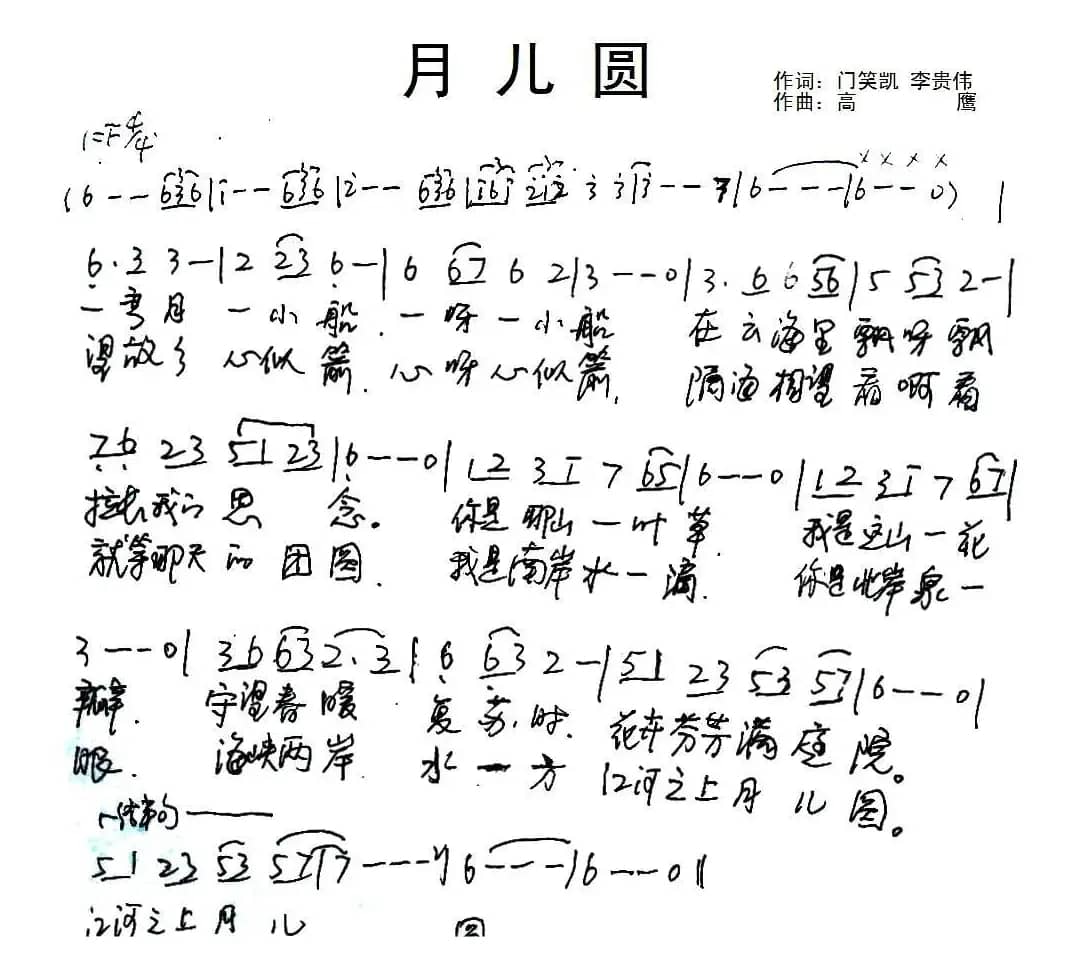 月儿圆
作词：门笑凯 李贵伟
作曲：高 鹰
1=F 4/4
(6 - - 636 | i - - 636 | 2 - - 636 | i6i 2i2 3 3 | 3 - - 7 | 6 - - - | 6 - - 0) |
x x x x
6. 3 3 - | 2 23 6 - | 6 67 6 2 | 3 - - - 0 | 3. 6 6 56 | 5 53 2 - |
一弯月 一小船. 一呀一小船 在云海里飘呀飘
望故乡 心似箭. 心呀心似箭. 隔海相望看啊看
76 23 51 23 | 6 - - - 0 | 12 3i 7 65 | 6 - - 0 | 12 3i 7 67 |
拉长我的思 念。 你是那山一叶草. 我是这山一花
就等那天的团圆. 我是南岸水一滴. 你是北岸泉一
3 - - - 0 | 36 63 2. 3 | 6 63 2 - | 51 23 53 57 | 6 - - - 0 |
瓣. 守望春暖 复苏时. 花卉芬芳满庭院。
眼. 海峡两岸. 水一方 江河之上月儿圆。
结束句
51 23 53 57 | 7 - - - - | 6 - - - | 6 - - - 0 ||
江河之上月儿 圆